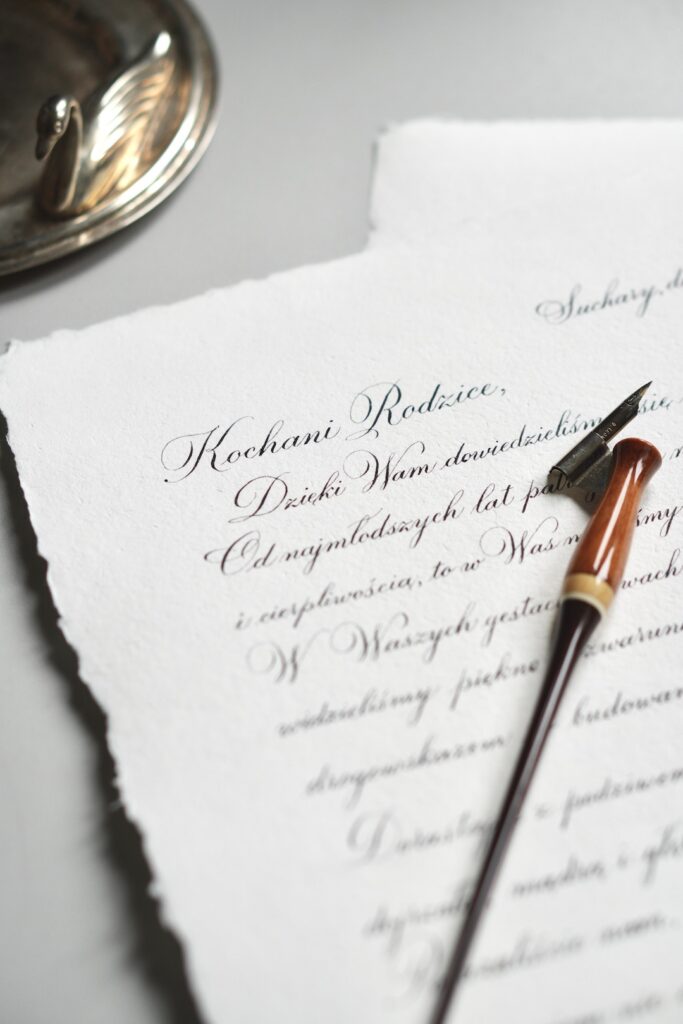 Suchary, d
Kochani Rodzice,
Dzięki Wam dowiedzieliśm się
Od najmłodszych lat pat
i cierpliwością, to w Was n śmy
W Waszych gestac wach
widzieliśmy piękno zwarun
drogowskazem budowan
z podziwem
mądrą i